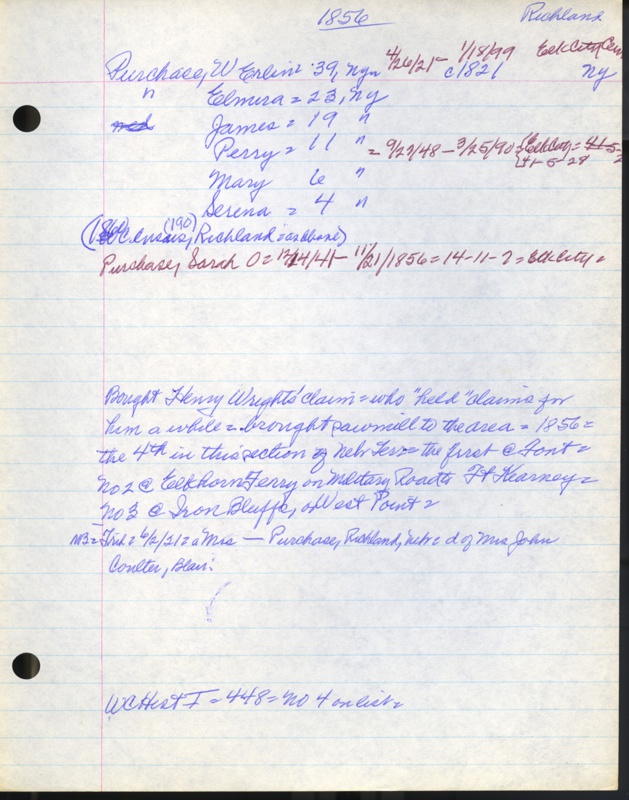 1856 Richland
Purchase, W Erlin = 39, Ny = 4/26/21 - 1/18/99 Elk City Cem
c1821 Ny
" Elmira = 23, Ny
James = 19 "
Perry = 11 " = 9/27/48 - 3/25/90 Elk City = 41-5-2
41-5-28
Mary 6 "
Serena = 4 "
(1860 Census, (190) Richland
Purchase, Sarah O = 12/14/41 - 11/21/1856 = 14-11-7 = Elk City =
Bought Henry Wrights' claim = who "held" claims for
him a while = brought sawmill to the area = 1856 =
the 4th in this section of Nebr Terr = the first @ Font =
No 2 @ Elkhorn Ferry on Military Road to Ft Kearney =
No 3 @ Iron Bluffs, or West Point =
NB = Trib = 6/2/21 = a "Mrs — Purchase, Richland, nebr = d of Mrs John
Coulter, Blair.
WC Hist I = 448 = No 4 on list =